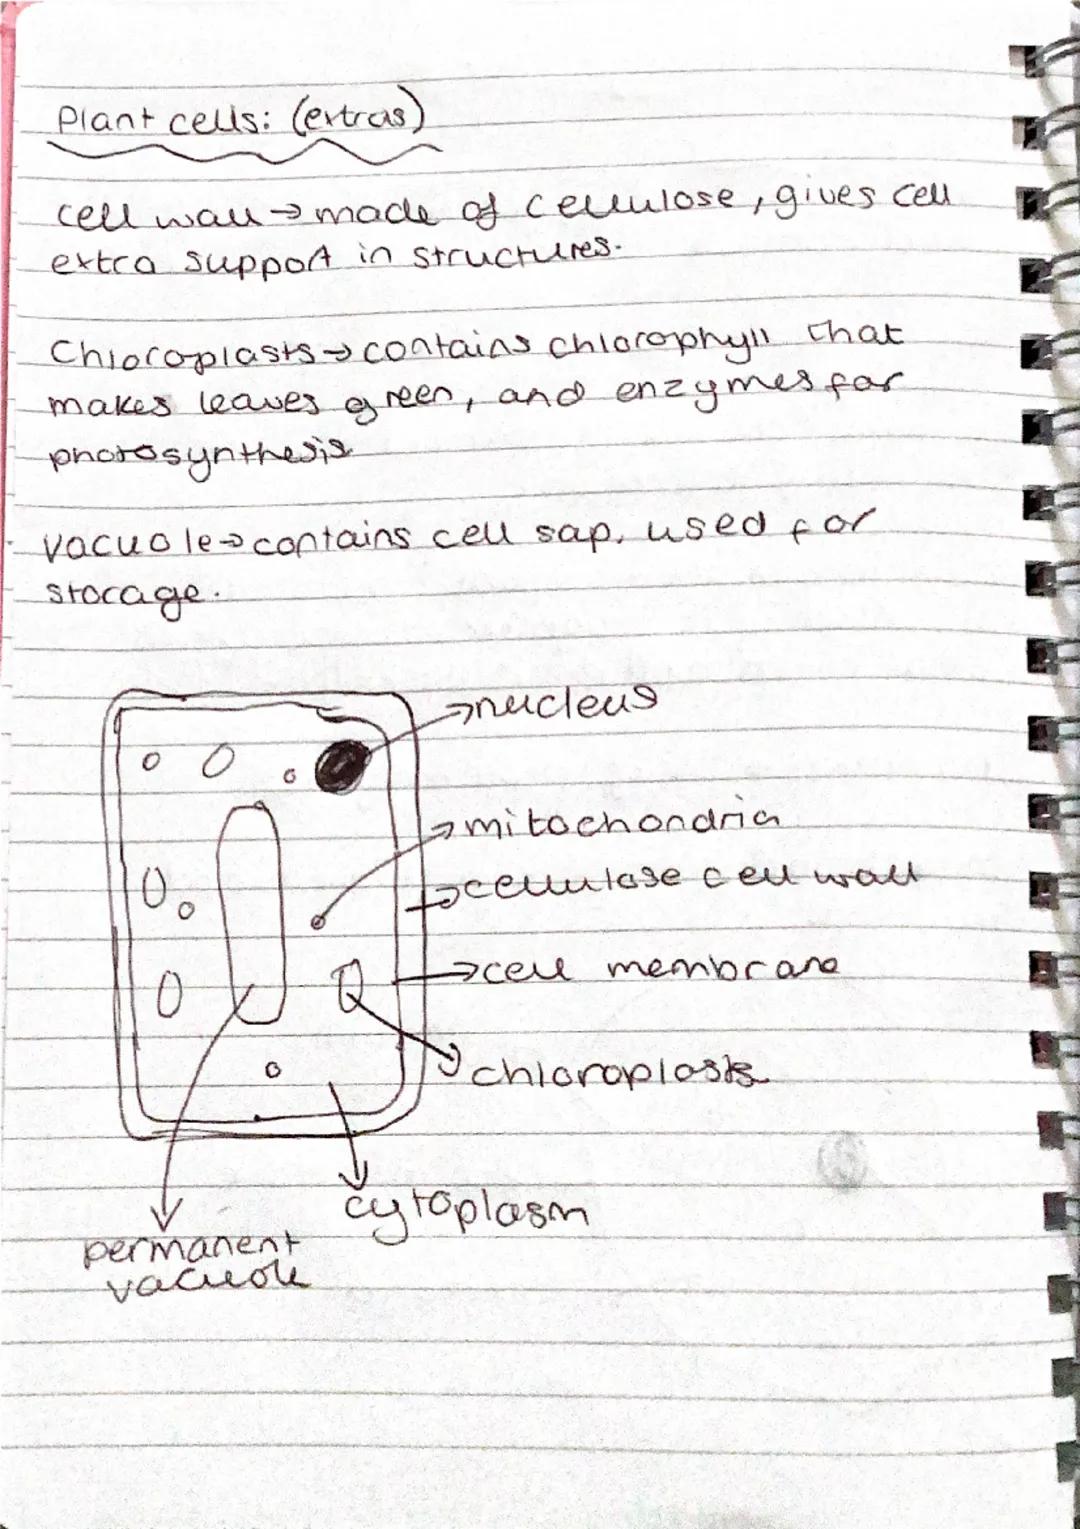 Plant cells: (extras)
cell wall → made of cellulose, gives cell
extra support in structures.
Chloroplasts → contains chlorophyll that
makes leaves green, and enzymes for
photosynthesis
vacuole → contains cell sap. used for
storage.
→ nucleus
→ mitochondria
→ cellulose cell wall
→ cell membrane
chloroplasts
cytoplasm
permanent
vacuole